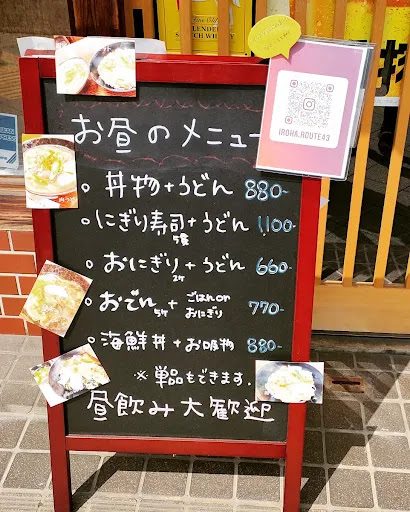 お昼のメニュー
IROHA.ROUTE43
丼物+うどん 880-
にぎり寿司+うどん 1,100-
5貫
おにぎり+うどん 660-
2ケ
おでん+ごはんor おにぎり 770-
5ケ
海鮮丼+お吸物 880-
※単品もできます.
昼飲み大歓迎